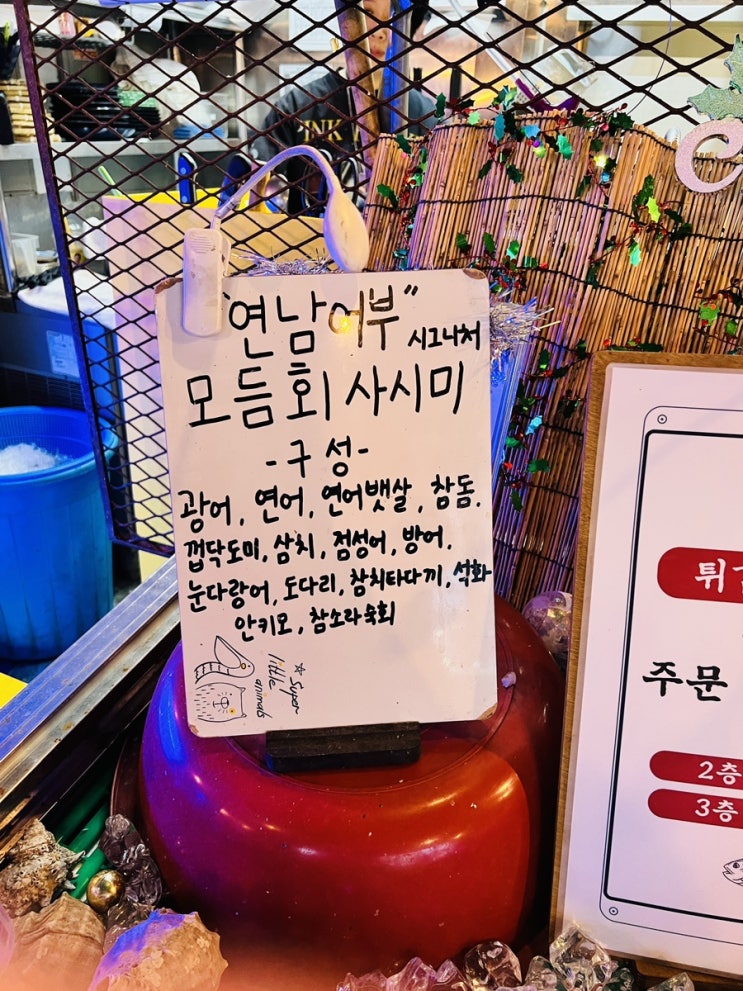 "연남어부" 시그니처
모듬회 사시미
-구성-
광어, 연어, 연어뱃살, 참돔,
껍닥도미, 삼치, 점성어, 방어,
눈다랑어, 도다리, 참치타다끼, 석화
안키모, 참소라숙회
☆ Super
little
animals
주문
2층
3층